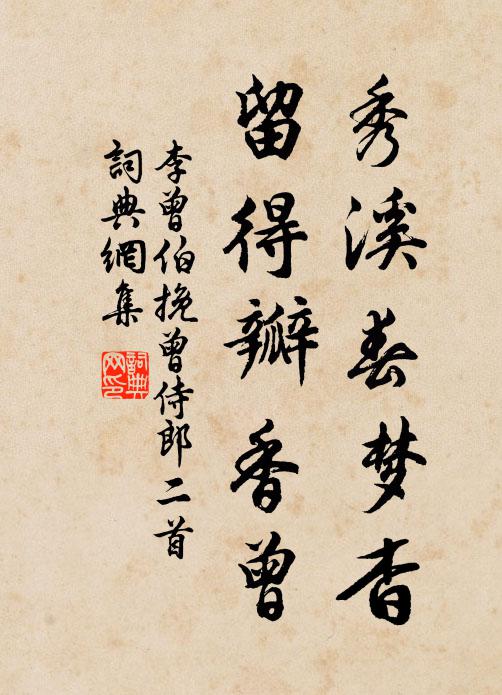 秀溪春梦杳
留得瓣香曾
李曾伯挽曾侍郎二首
詞典網集
詞典网印